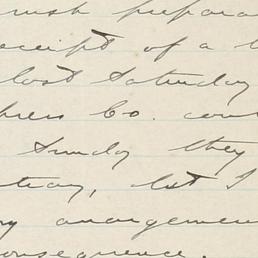 rush prepara
receipt of a l
last Saturday
press Co. con
Sunday they
tray, but I
ny arrangemen
consequence.